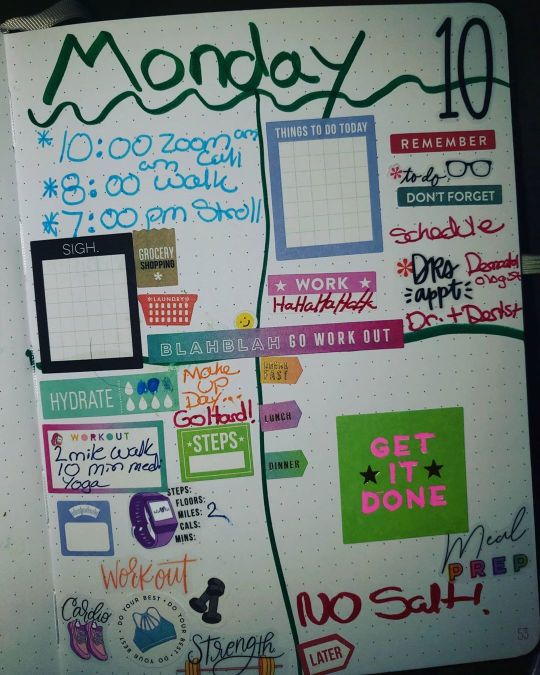 Monday
10
*10:00 zoom am
am call
*8:00 walk
*7:00 pm Stroll
THINGS TO DO TODAY
REMEMBER
*to do
DON'T FORGET
Schedule
*DRS
appt
Dr. + Dentist
SIGH.
GROCERY
SHOPPING
LAUNDRY
WORK
HaHaHaHaHa
BLAHBLAH GO WORK OUT
HYDRATE
Make
up
Day...
Go Hard!
BREAKFAST
LUNCH
DINNER
WORKOUT
2 mile walk
10 min medi
Yoga
STEPS
STEPS:
FLOORS:
MILES: 2
CALS:
MINS:
GET
IT
DONE
Meal
PREP
Workout
NO Salt!
Cardio
DO YOUR BEST • DO YOUR BEST • DO YOUR BEST
Strength
LATER
53